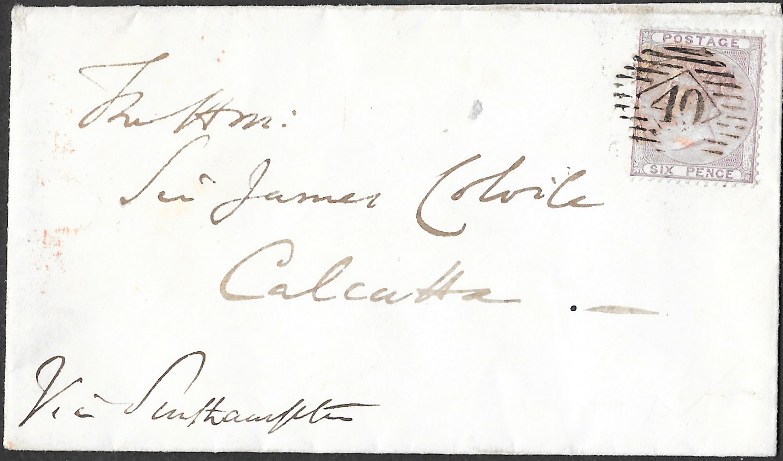 POSTAGE
10
SIX PENCE
The Hon:
Sir James Colvile
Calcutta . —
Via Southampton